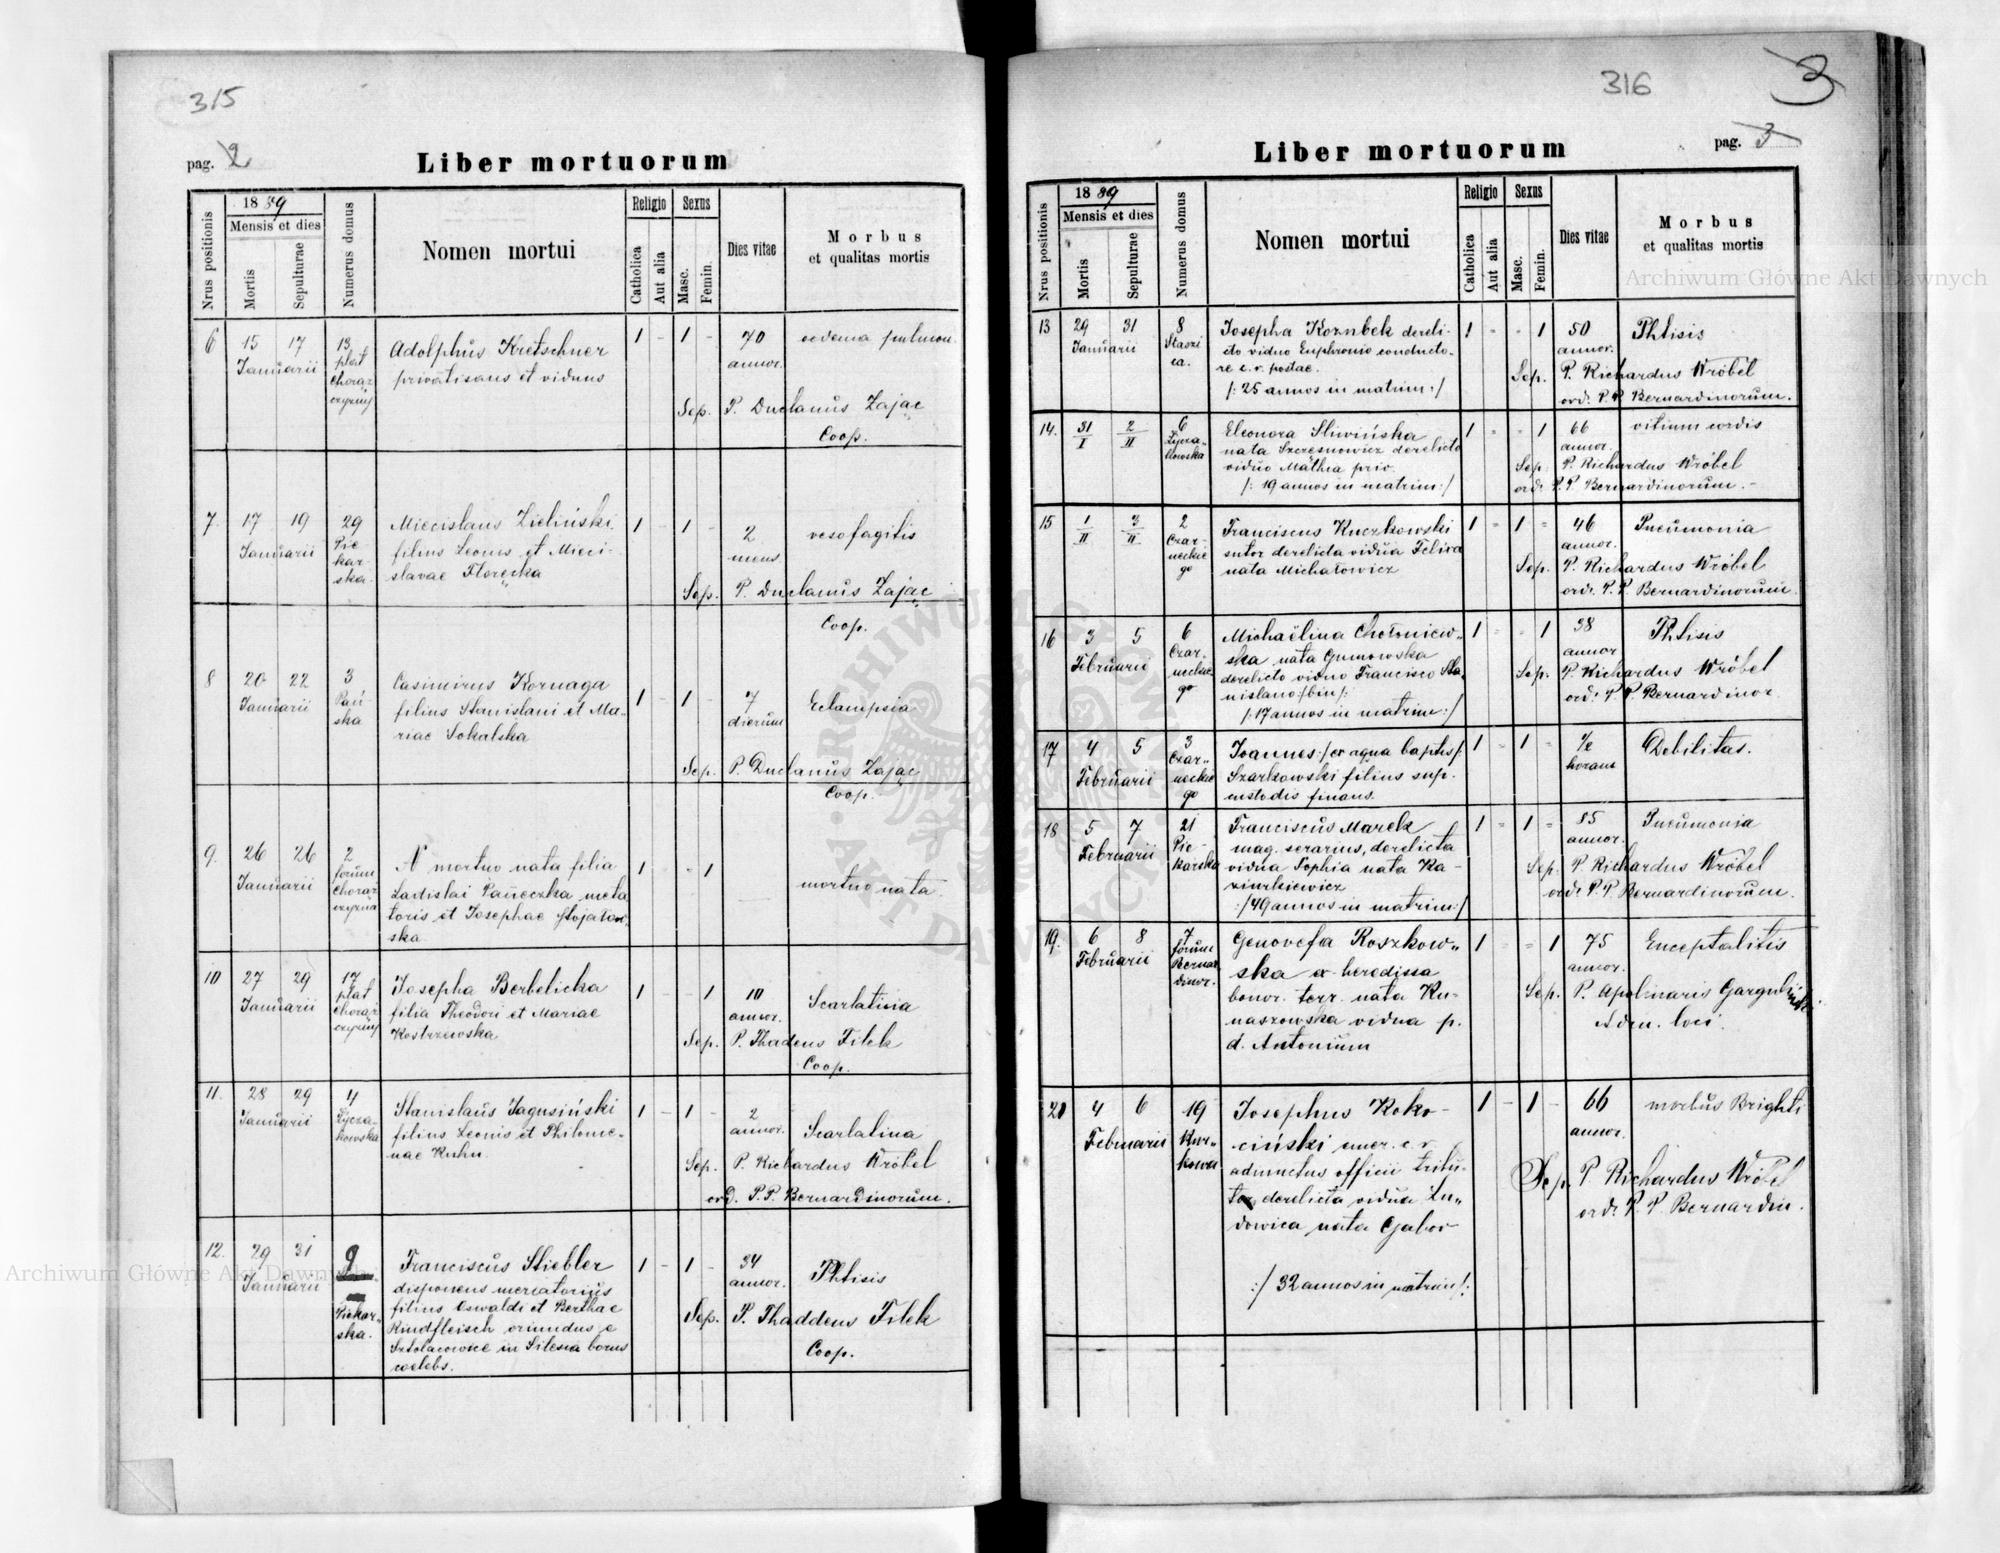 315
pag. 2
Liber mortuorum
Nrus positionis
1889
Mensis et dies
Mortis
Sepulturae
Numerus domus
Nomen mortui
Religio
Catholica
Aut alia
Sexus
Masc.
Femin.
Dies vitae
Morbus
et qualitas mortis
6 15 17 13 Adolphus Kretschner 1 - 1 - 70 oedema pulmon.
Januarii plat privatisans et viduus annor.
Choraż
czyzny
Sep. P. Duclanus Zając
Coop.
7. 17 19 29 Miecislaus Zieliński 1 - 1 - 2 oesofagitis
Januarii Pie filius Leonis et Mieci- mens.
kar slavae Floręcka
ska
Sep. P. Duclanus Zając
Coop.
8 20 22 3 Casimirus Kornaga 1 - 1 - 7 Eclampsia
Januarii Pań- filius Stanislai et Ma- dierum
ska riae Sokalska
Sep. P. Duclanus Zając
Coop.
9. 26 26 2 N mortuo nata filia 1 - - 1 mortuo nata
Januarii forum Ladislai Paneczka meta
Choraż toris et Josephae Stojałow-
czyzna ska
10 27 29 17 Josepha Berbelicka 1 - - 1 10 Scarlatina
Januarii plat filia Theodori et Mariae annor.
Choraż Kostrzewska
czyzny
Sep. P. Thadeus Filek
Coop.
11. 28 29 4 Stanislaus Jagusiński 1 - 1 - 2 Scarlatina
Januarii Łycza- filius Leonis et Philome- annor.
kowska nae Kuhn.
Sep. P. Richardus Wróbel
ord. P.P. Bernardinorum.
12. 29 31 9 Franciscus Stiebler 1 - 1 - 34 Phtisis
Januarii disponens mercatorius annor.
Piekar- filius Oswaldi et Berthae
ska. Rindfleisch oriundus e
in Silesia boruss
coelebs.
Sep. P. Thaddeus Filek
Coop.
316
3
pag. 3
Liber mortuorum
Nrus positionis
1889
Mensis et dies
Mortis
Sepulturae
Numerus domus
Nomen mortui
Religio
Catholica
Aut alia
Sexus
Masc.
Femin.
Dies vitae
Morbus
et qualitas mortis
13 29 31 8 Josepha Koznbek dereli- 1 - - 1 50 Phtisis
Januarii Staszi cto viduo Euphronio conducto- annor.
ca. re c. r. postae.
/: 25 annos in matrim :/
Sep. P. Richardus Wróbel
ord. P.P Bernardinorum.
14. 31/I 2/II 6 Eleonora Śliwińska 1 - - 1 66 vitium cordis
Łycza- nata Szczęsnowicz derelicto annor.
kowska viduo Mathia priv.
/: 19 annos in matrim :/
Sep. P. Richardus Wróbel
ord. P.P Bernardinorum. -
15 1/II 3/II 2 Franciscus Kuczkowski 1 - 1 - 46 Pneumonia
Czar- sutor derelicta vidua Felixa annor.
neckie nata Michałowicz
go
Sep. P. Richardus Wróbel
ord. P. P Bernardinorum
16 3 5 6 Michaëlina Chołoniew- 1 - - 1 38 Phtisis
Februarii Czar- ska nata Gumowska annor
neckie derelicto viduo Francisco Sta-
go nislano /:bin:/
/: 17 annos in matrim :/
Sep. P. Richardus Wróbel
ord. P. P. Bernardinor.
17 4 5 3 Joannes :/ex aqua baptis/: 1 - 1 - 1/2 Debilitas.
Februarii Czar- Szarkowski filius sup. horam
neckie custodis finans.
go
18 5 7 21 Franciscus Marek 1 - 1 - 85 Pneumonia
Februarii Pie- mag. serarius, derelicta annor.
karska vidua Sophia nata Ka-
zimrkiewicz
:/49 annos in matrim:/
Sep. P. Richardus Wróbel
ord. P.P Bernardinorum.
19. 6 8 7 Genovefa Roszkow- 1 - - 1 75 Encephalitis
Februarii forum ska ex heredissa annor.
Bernar bonor. terr. nata Ku-
dinor. naszowska vidua p.
d. Antonium
Sep. P. Apolinaris
Adm. loci.
20 4 6 19 Josephus Koko- 1 - 1 - 66 morbus Brighti
Februarii Kur- ciński emer. c. r. annor.
kowa adiunctus officii tribu-
to derelicta vidua Lu-
dowica nata Gabor
:/ 32 annos in matrim /:
Sep. P Richardus Wróbel
ord. P. P Bernardin.
Archiwum Główne Akt Dawnych
Archiwum Główne Akt Dawnych
ARCHIWUM GŁÓWNE AKT DAWNYCH